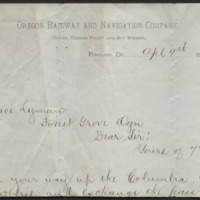 Oregon Railway and Navigation Company,
Office, Corner Front and
Portland, Or. Apl 9nd
ace Lyman
Forest Grove Ogn
Dear Sir:
Yours of 7
your way up the Columbia,
and exchange the pass